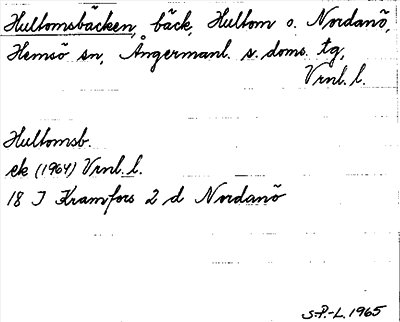 Hultomsbäcken, bäck, Hultom o. Nordanö,
Hemsö sn, Ångermanl. s. doms. tg,
Vrnl. l.
Hultomsb.
ek (1964) Vrnl. l.
18 J Kramfors 2 d Nordanö
S-P.-L. 1965